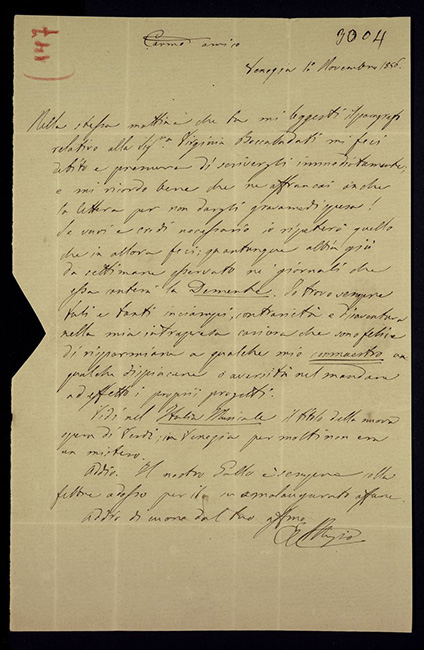 147
3004
Carmo amico
Venezia 10 Novembre 1856.
Nella stessa mattina che tu mi leggesti il paragrafo
relativo alla Sigra Virginia Boccabadati mi feci
debito e premura di scrivergli immediatamente,
e mi ricordo bene che ne affrancai anche
la lettera per non dargli gravame di spesa!
Se vuoi e credi necessario io ripeterò quello
che in allora feci; quantunque abbia già
da settimane osservato ne' giornali che
essa canterà la Demente. Io trovo sempre
tali e tanti inciampi, contrarietà e disavventure
nella mia intrapresa carriera che sono felice
di risparmiare a qualche mio connaestro un
qualche dispiacere o avversità nel mandare
ad effetto i proprii progetti.
Vidi nel Italia Musicale il titolo della nuova
opera di Verdi; in Venezia per molti non era
un mistero.
Addio. Il nostro Gallo è sempre alla
Feltre adesso per il malaugurato affare.
Addio di cuore dal tuo affmo